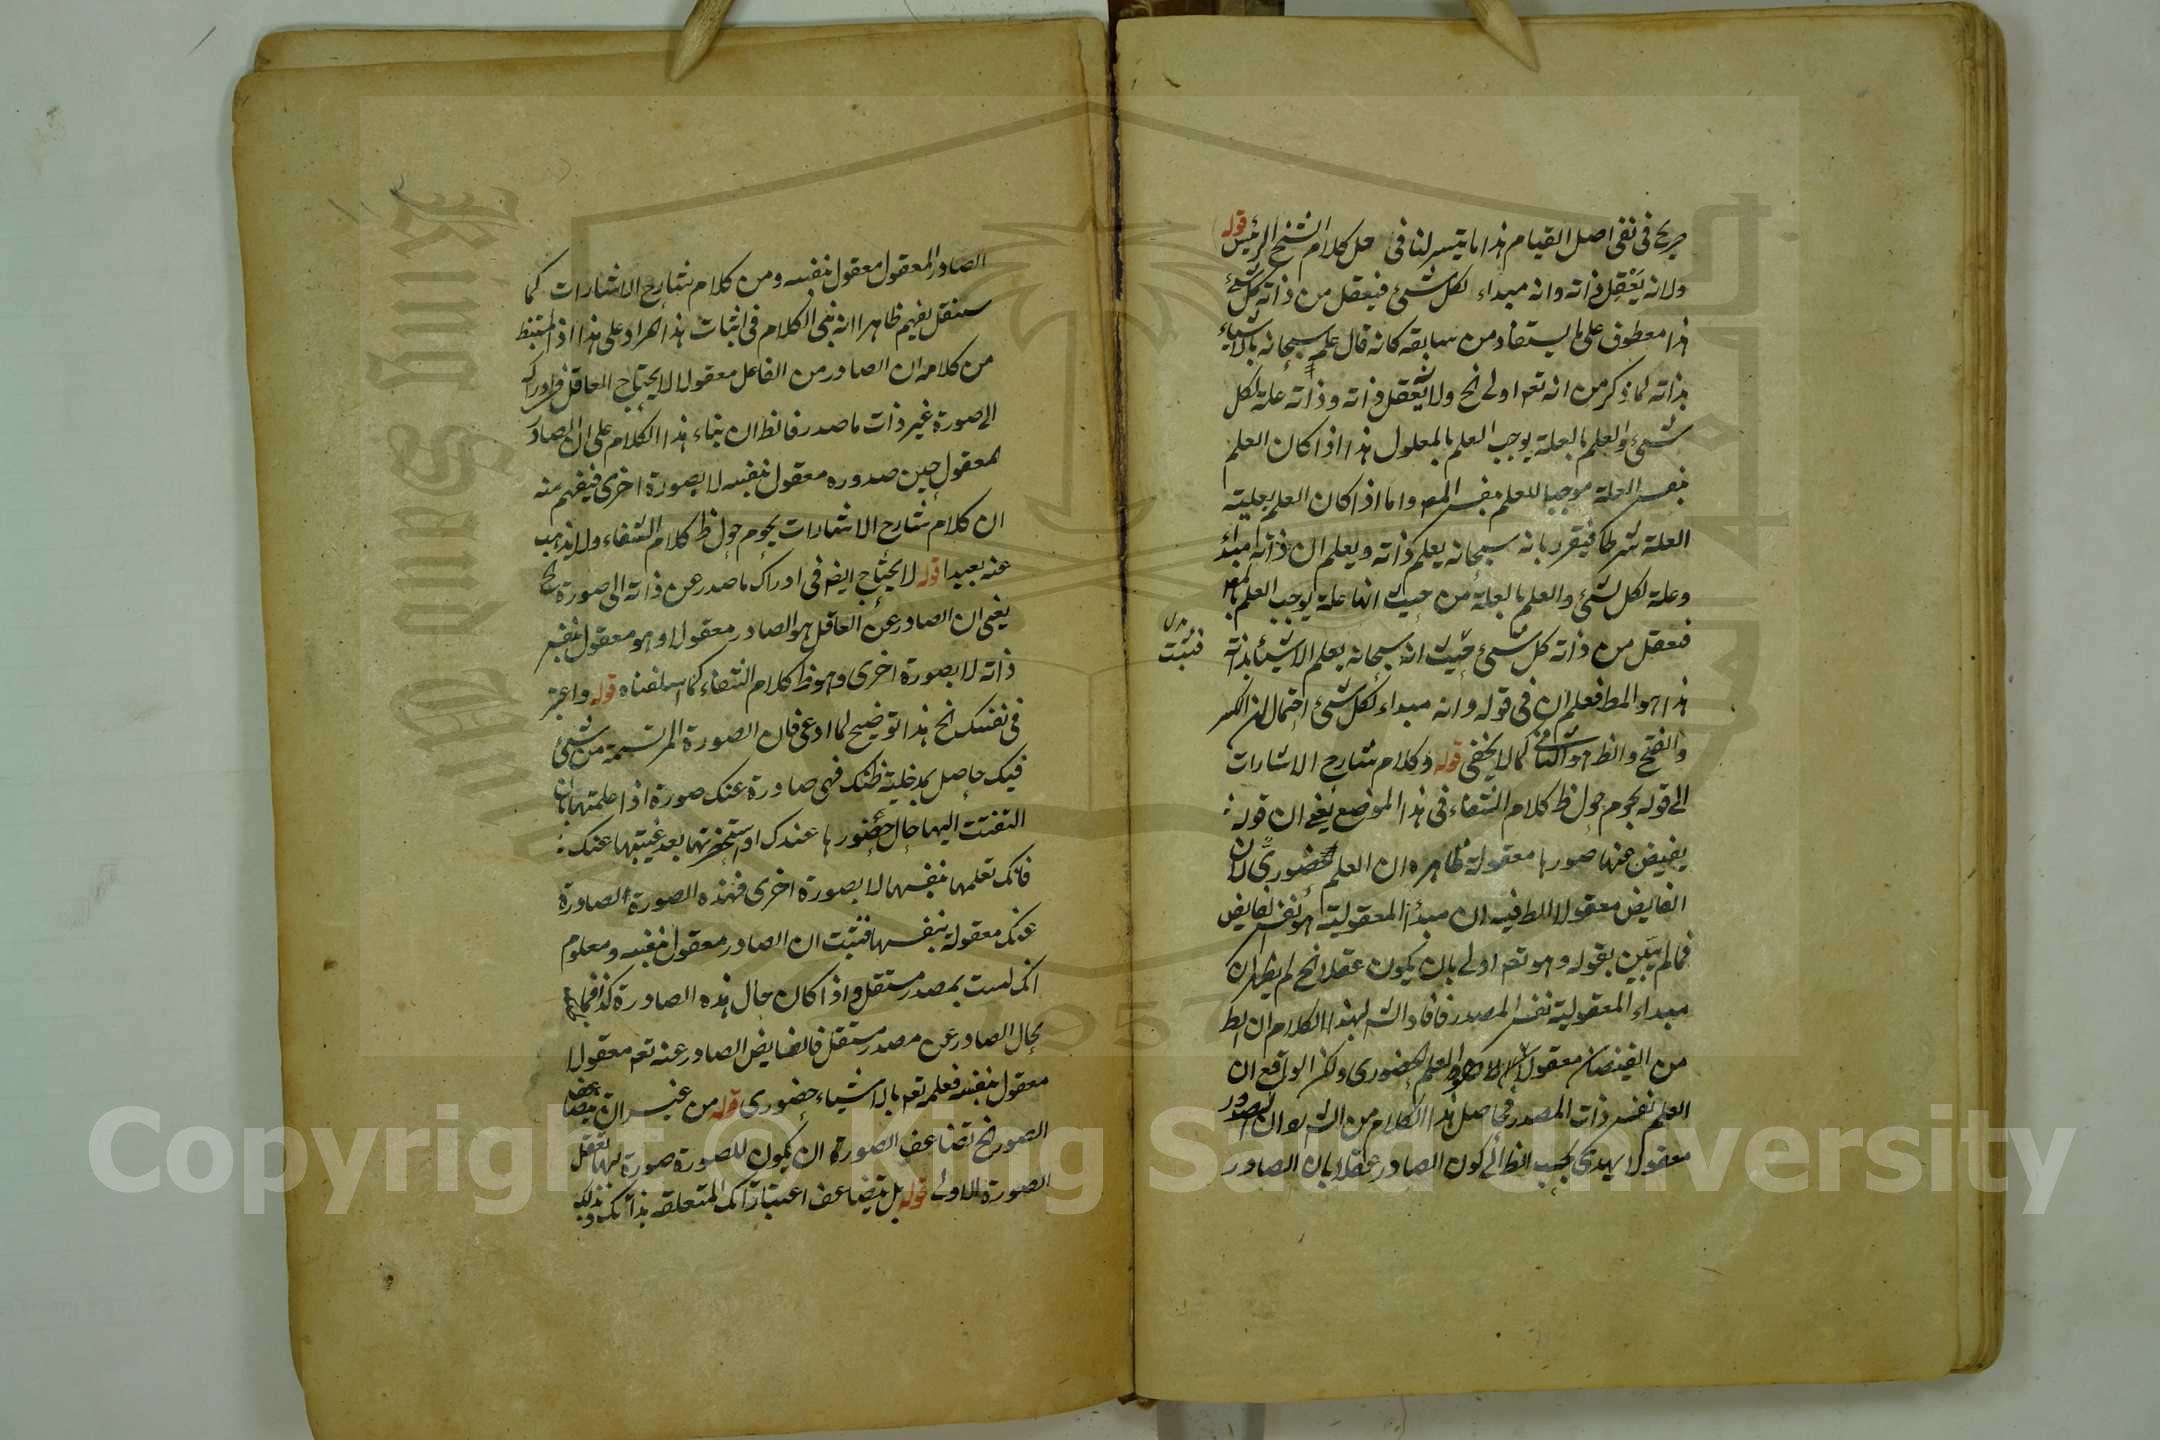 صريح في نفى اصل القيام هذا ما يتيسر لنا في حل كلام الشيخ الرئيس قوله
ولانه يَعْقِل ذاته وانه مبداء لكل شيئ فيعقل من ذاته كل شيئ
هذا معطوف على ما يستفاد من سابقه كانه قال علم سبحانه بالاشياء
بذاته لما ذكر من انه تعم اولى الخ ولانه يَعْقِل ذاته وذاته علة لكل
شيئ والعلم بالعلة يوجب العلم بالمعلول هذا اذا كان العلم
بنفس العلة موجبا للعلم بنفس المعـ واما اذا كان العلم بعلية
العلة شرطا فيقرر بانه سبحانه يعلم ذاته ويعلم ان ذاته مبداء
وعلة لكل شيئ والعلم بالعلة من حيث انها علة يوجب العلم بالمعـ
فيعقل من ذاته كل شيئ حيث انه سبحانه يعلم الاشياء بذاته
فثبت
هذا هو المط فعلم ان في قوله وانه مبداء لكل شيئ احتمالان الكسر
والفتح والظ هو الثاني كما لا يخفى قوله وكلام شارح الاشارات
الى قوله يحوم حول ظ كلام الشفاء في هذا الموضع يعنى ان قوله
يفيض عنها صورها معقولة ظاهره ان العلم حضورى لان
الفايض معقولا الظ فيه ان مبدأ المعقولية هو نفس الفايض
فما لم يبين بقوله وهو تعم اولى بان يكون عقلا الخ لم يظهر ان
مبداء المعقولية نفس المصدر فافاد الش بهذا الكلام ان الظ
من الفيضان معقولا العلم الحضورى ولكن الواقع ان
العلم نفس ذات المصدر فحاصل هذا الكلام من الش هو ان الصدور
معقولا يهدى بحسب الظ الى كون الصادر عقلا بان الصادر
الصادر المعقول معقول بنفسه ومن كلام شارح الاشارات كما
سننقل يفهم ظاهرا انه بنى الكلام في اثبات هذا المراد على هذا اذ المستنبط
من كلامه ان الصادر من الفاعل معقولا لا يحتاج العاقل في ادراكه
الى صورة غير ذات ما صدر فالظ ان بناء هذا الكلام على ان الصادر
المعقول حين صدوره معقول بنفسه لا بصورة اخرى فيفهم منه
ان كلام شارح الاشارات يحوم حول ظ كلام الشفاء ولا يذهب
عنه بعيدا قوله لا يحتاج ايضا في ادراك ما صدر عن ذاته الى صورة الخ
يعنى ان الصادر عن العاقل هو الصادر معقولا وهو معقول بنفس
ذاته لا بصورة اخرى وهو ظ كلام الشفاء كما اسلفناه قوله واعتبر
في نفسك الخ هذا توضيح لما ادعى فان الصورة المرتسمة من شيئ
فيك حاصل بمدخلية ظنك فهى صادرة عنك صورة اذا علمتها بان
التفتت اليها حال حضورها عندك او استحضرتها بعد غيبتها عنك
فانك تعلمها بنفسها لا بصورة اخرى فهذه الصورة الصادرة
عنك معقولة بنفسها فثبت ان الصادر معقول بنفسه ومعلوم
انك لست بمصدر مستقل واذا كان حال هذه الصادرة كذا فما
بحال الصادر عن مصدر مستقل فالفايض الصادر عنه تعم معقولا
معقول بنفسه فعلمه تعم بالاشياء حضورى قوله من غير ان يتضاعف
الصور الخ تضاعف الصورة ان يكون للصورة صورة بها تعقل
الصورة الاولى قوله بل يتضاعف اعتباراتك المتعلقة بذاتك وبتلك